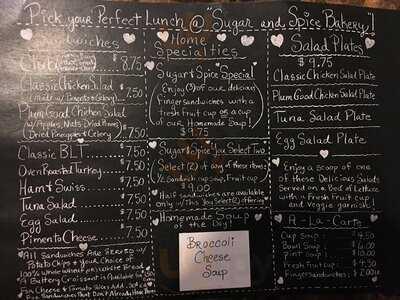 Pick your Perfect Lunch @ "Sugar and Spice Bakery"!
Sandwiches
Club $8.75
Classic Chicken Salad
(Made w/ Grapes & Celery) 7.50
Plum Good Chicken Salad
(w/ Apples, Nuts, Dried Plums,
Dried Pineapple & Celery) 7.50
Classic BLT 7.50
Oven Roasted Turkey 7.50
Ham & Swiss 7.50
Tuna Salad 7.50
Egg Salad 7.50
Pimento Cheese 7.50
*All Sandwiches Are Served w/
Potato Chips & your Choice of
100% whole wheat or white Bread
*A Buttery Croissant is Available for
*Cheese & Tomato Was Add
For Sandwiches That Don't Already Have Them
Home
Specialties
Sugar & Spice Special
(Enjoy (3) of our delicious
Finger sandwiches with a
fresh fruit cup or a cup
of our Homemade Soup!
$9.75
Sugar & Spice You Select Two
(Select (2) of any of these items
Sandwich, cup soup, Fruit cup)
$9.00
*Half sandwiches are available
Only w/ This You Select (2) offering*
Homemade Soup of
the Day!
Broccoli
Cheese
Soup
Salad Plates
$9.75
Classic Chicken Salad Plate
Plum Good Chicken Salad Plate
Tuna Salad Plate
Egg Salad Plate
Enjoy a scoop of one
of these Delicious Salads
Served on a Bed of Lettuce
with a Fresh Fruit cup
and veggie garnish!
A-la-Carte
Cup soup 4.50
Bowl Soup 6.00
Pint soup 10.00
Fresh Fruit cup 4.50
Finger Sandwiches